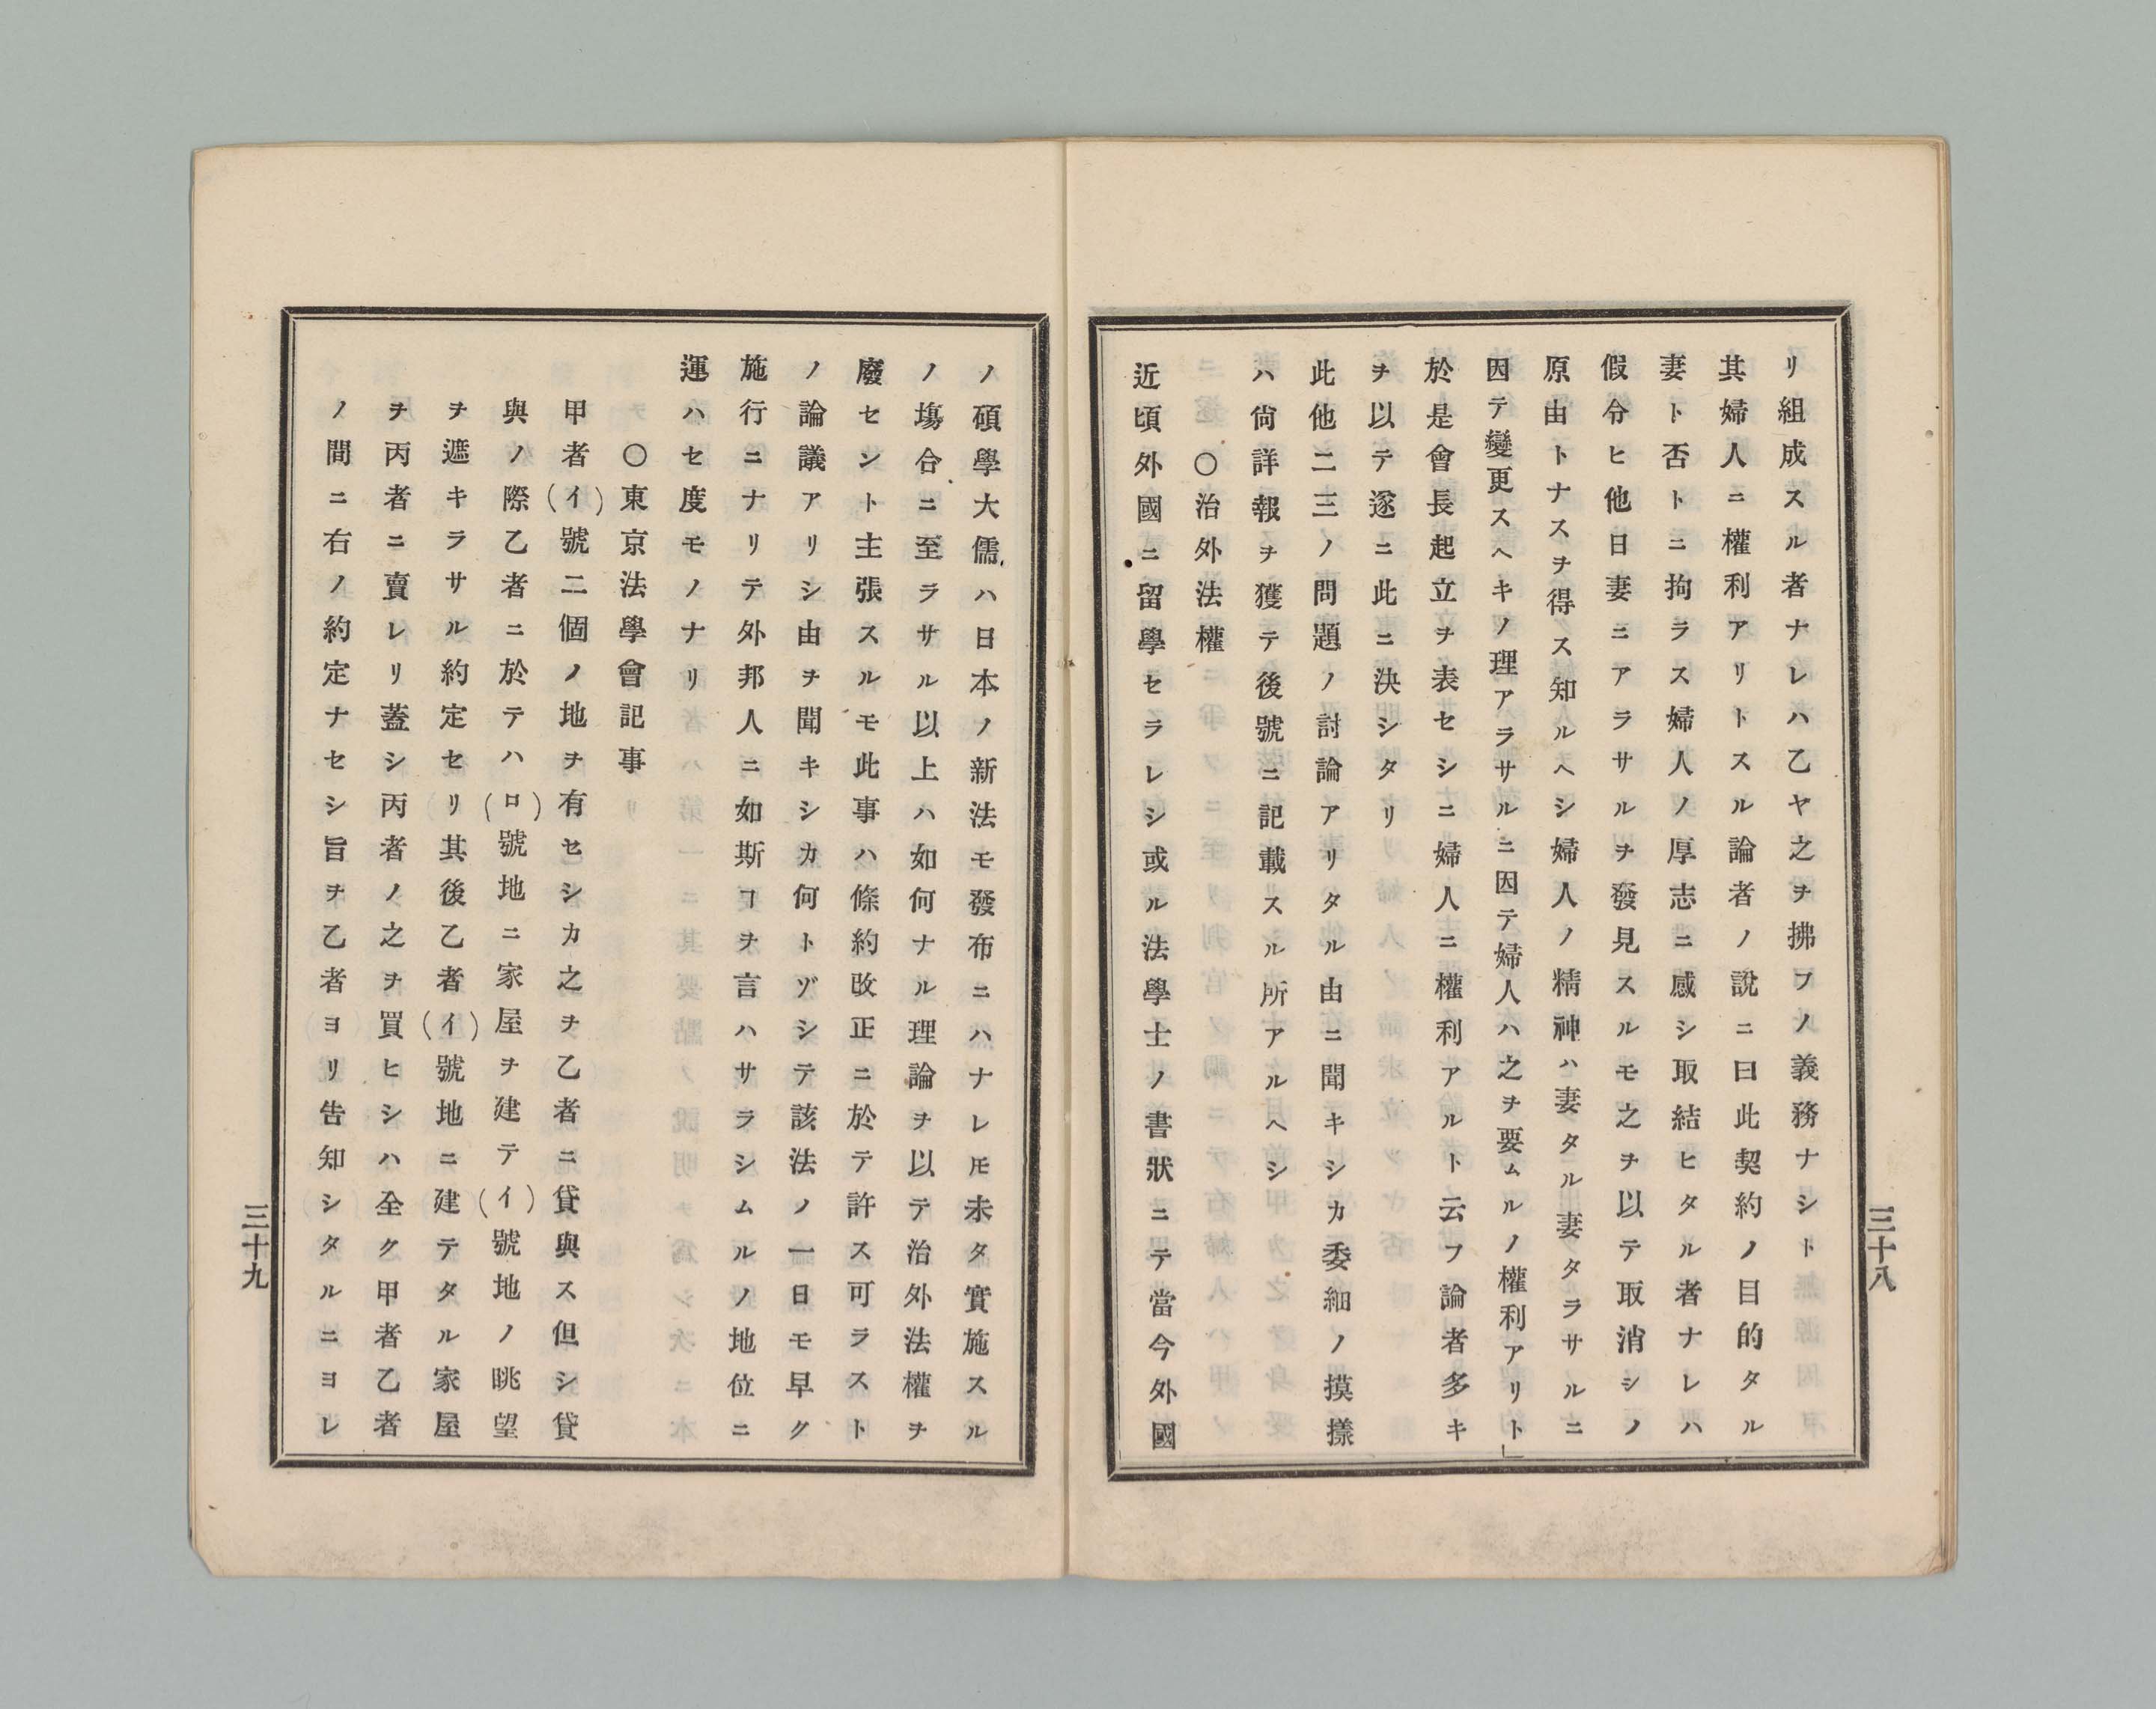 三十八
リ組成スル者ナレハ乙ヤ之ヲ拂フノ義務ナシト
其婦人ニ權利アリトスル論者ノ說ニ曰此契約ノ目的タル
妻ト否トニ拘ラス婦人ノ厚志ニ感シ取結ヒタル者ナレハ
假令ヒ他日妻ニアラサルヲ發見スルモ之ヲ以テ取消シノ
原由トナスヲ得ス知ルヘシ婦人ノ精神ハ妻タル妻タラサルニ
因テ變更スヘキノ理アラサルニ因テ婦人ハ之ヲ要ムルノ權利アリト」
於是會長起立ヲ表セシニ婦人ニ權利アルト云フ論者多キ
ヲ以テ遂ニ此ニ決シタリ
此他二三ノ問題ノ討論アリタル由ニ聞キシカ委細ノ摸樣
ハ尙詳報ヲ獲テ後號ニ記載スル所アルヘシ
〇治外法權
近頃外國ニ留學セラレシ或ル法學士ノ書狀ニテ當今外國
ノ碩學大儒ハ日本ノ新法モ發布ニハナレ𪜈未タ實施スル
ノ塲合ニ至ラサル以上ハ如何ナル理論ヲ以テ治外法權ヲ
廢セシト主張スルモ此事ハ條約改正ニ於テ許ス可ラスト
ノ論議アリシ由ヲ聞キシカ何トゾシテ該法ノ一日モ早ク
施行ニナリテ外邦人ニ如斯ヿヲ言ハサラシムルノ地位ニ
運ハセ度モノナリ
〇東京法學會記事
甲者(イ)號二個ノ地ヲ有セシカ之ヲ乙者ニ貸與ス但シ貸
與ノ際乙者ニ於テハ(ロ)號地ニ家屋ヲ建テ(イ)號地ノ眺望
ヲ遮キラサル約定セリ其後乙者(イ)號地ニ建テタル家屋
ヲ丙者ニ賣レリ蓋シ丙者ノ之ヲ買ヒシハ全ク甲者乙者
ノ間ニ右ノ約定ナセシ旨ヲ乙者ヨリ告知シタルニヨレ
三十九